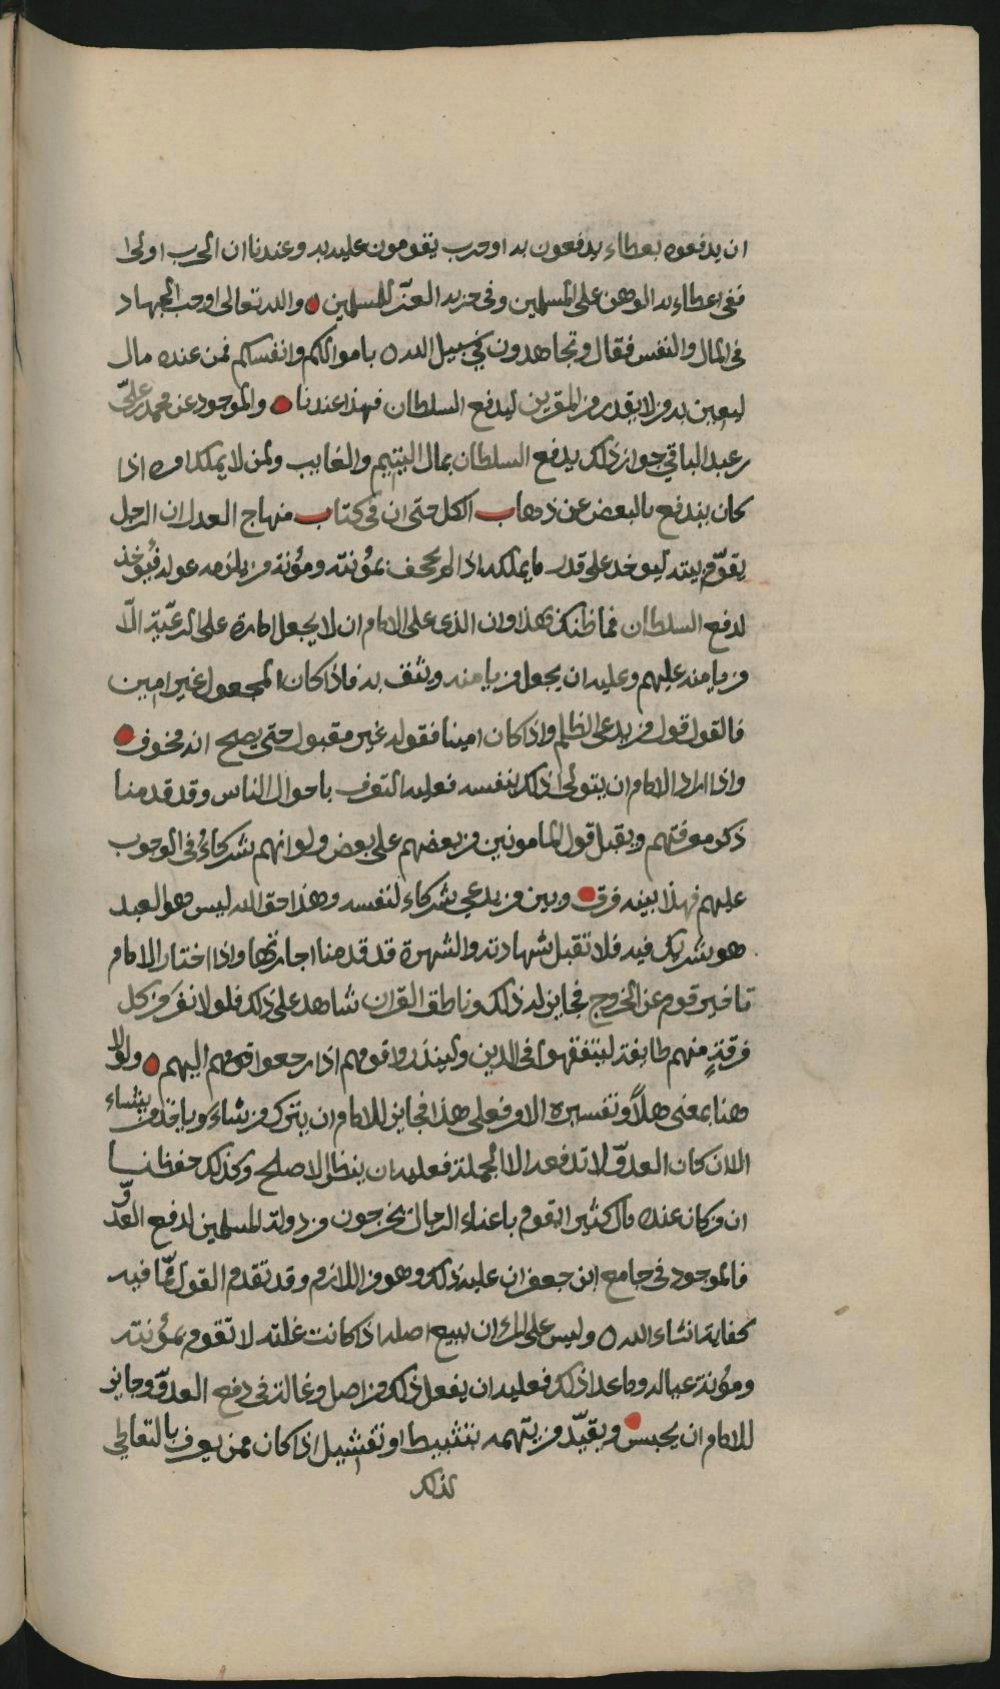 ان يدفعوه بعطاء يدفعون به او حرب يقومون عليه به وعندنا ان الحرب اولى ا
ففي اعطاءه الوهن على المسلمين وفي حربه العز للمسلمين والله تعالى اوجب الجهاد
في المال والنفس فقال وتجاهدون في سبيل الله باموالكم وانفسكم فمن عنده مال
ليعين به من لا يقدر من المقرين ليدفع السلطان فهذا عندنا والموجود عن محمد بن علي
بن عبد الباقي جواز ذلك يدفع السلطان بمال اليتيم والغايب ولمن لا يملك امره اذا
كان يندفع بالبعض عن ذهاب الكل حتى ان في كتاب منهاج العدل ان الرجل
يقوّم بيته ليوخذ على قدر ما يملكه اذا لم يجحف بمؤنته ومؤنة من يلزمه عوله فيؤخذ
لدفع السلطان فما ظنك بهذا وان الذى على الامام ان لا يجعل امارة على الرعيّة الّا
من يامنه عليهم وعليه ان يجعل من يامنه ويثق به فاذا كان المجعول غير امين
فالقول قول من يدعى الظلم واذا كان امينا فقوله غير مقبول حتى يصح انه مخوف
واذا اراد الامام ان يتولى ذلك بنفسه فعليه التعرف باحوال الناس وقد قدمنا
ذكر معرفتهم ويقبل قول المامونين من بعضهم على بعض ولو انهم شركاؤ في الوجوب
عليهم فهذا بينه فرق وبين من يدعي شركاء لنفسه وهذا حق الله ليس هو العبد
هو شريك فيه فلا تقبل شهادته والشهرة قد قدمنا اجازتها واذا اختار الامام
تاخير قوم عن الخروج فجايز له ذلك وناطق القران شاهد على ذلك فلولا نفر من كل
فرقةٍ منهم طايفة ليتفقهوا في الدين ولينذروا قومهم اذا رجعوا قومهم اليهم ولولا
هنا بمعنى هلاً وتفسيره الامر فعلى هذا فجايز للامام ان يترك من شاء وياخذ من يشاء
الا ان كان العدوّ لا تدفعه الا الجملة فعليه ان ينظر الاصلح وكذلك حفظنا
ان من كان عنده مال كثير ايقوم باغناء الرجال يخرجون من دولة المسلمين لدفع العدوّ
فالموجود في جامع ابن جعفر ان عليه ذلك وهو من اللازم وقد تقدم القول ممّا فيه
كفاية انشاء الله وليس على المرء ان يبيع اصله اذا كانت غلته لا تقوم بمؤنته
ومؤنة عياله وما عدا ذلك فعليه ان يفعل ذلك من اصل وغالة في دفع العدوّ وجايز
للامام ان يحبس ويقيّد من يتهمه بتثبيط او تفشيل اذا كان ممن يعرف بالتعاطي
لذلك